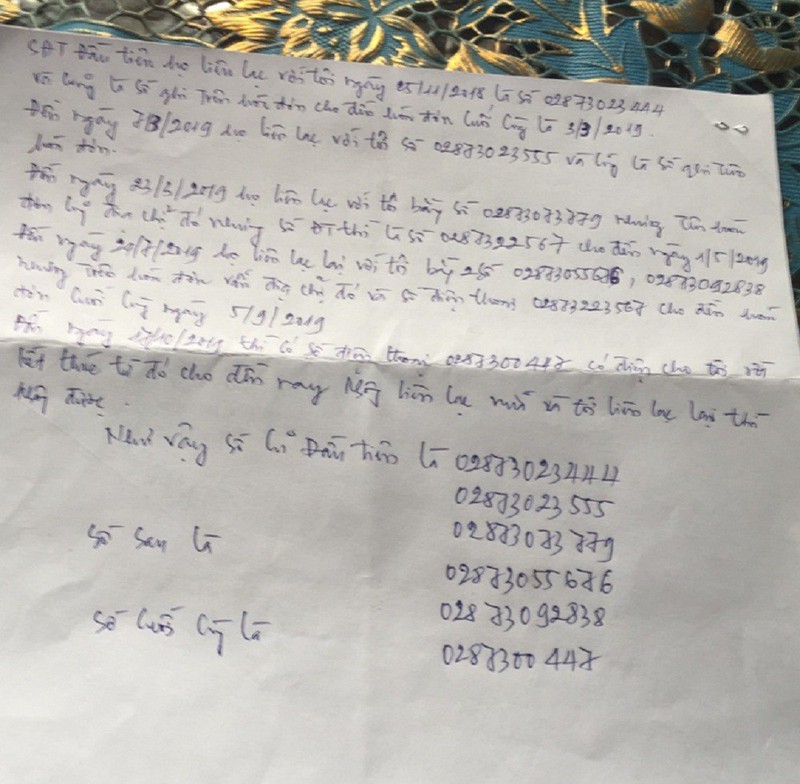 SĐT Đầu tiên họ liên lạc với tôi ngày 25/11/2018 là số 02873023444
và cũng là số ghi trên hóa đơn cho đến hóa đơn cuối cùng là 3/3/2019.
Đến ngày 7/3/2019 họ liên lạc với tôi số 02873023555 và cũng là số ghi trên
hóa đơn.
Đến ngày 23/3/2019 họ liên lạc với tôi bằng số 02873073779 nhưng trên hóa
đơn cũng địa chỉ đó nhưng số ĐT thì là số 0287322567 cho đến ngày 1/5/2019
Đến ngày 20/7/2019 họ liên lạc lại với tôi bằng 2 số 02873055676, 02873092838
nhưng trên hóa đơn vẫn địa chỉ đó và số điện thoại 02873223567 cho đến hóa
đơn cuối cùng ngày 5/9/2019
Đến ngày 17/10/2019 thì có số điện thoại 0287300447 có điện cho tôi rồi
kết thúc từ đó cho đến nay không liên lạc nữa và tôi liên lạc lại thì
không được.
Như vậy số cũ Đầu tiên là 02873023444
02873023555
số sau là 02873073779
02873055676
số cuối cùng là 02873092838
0287300447